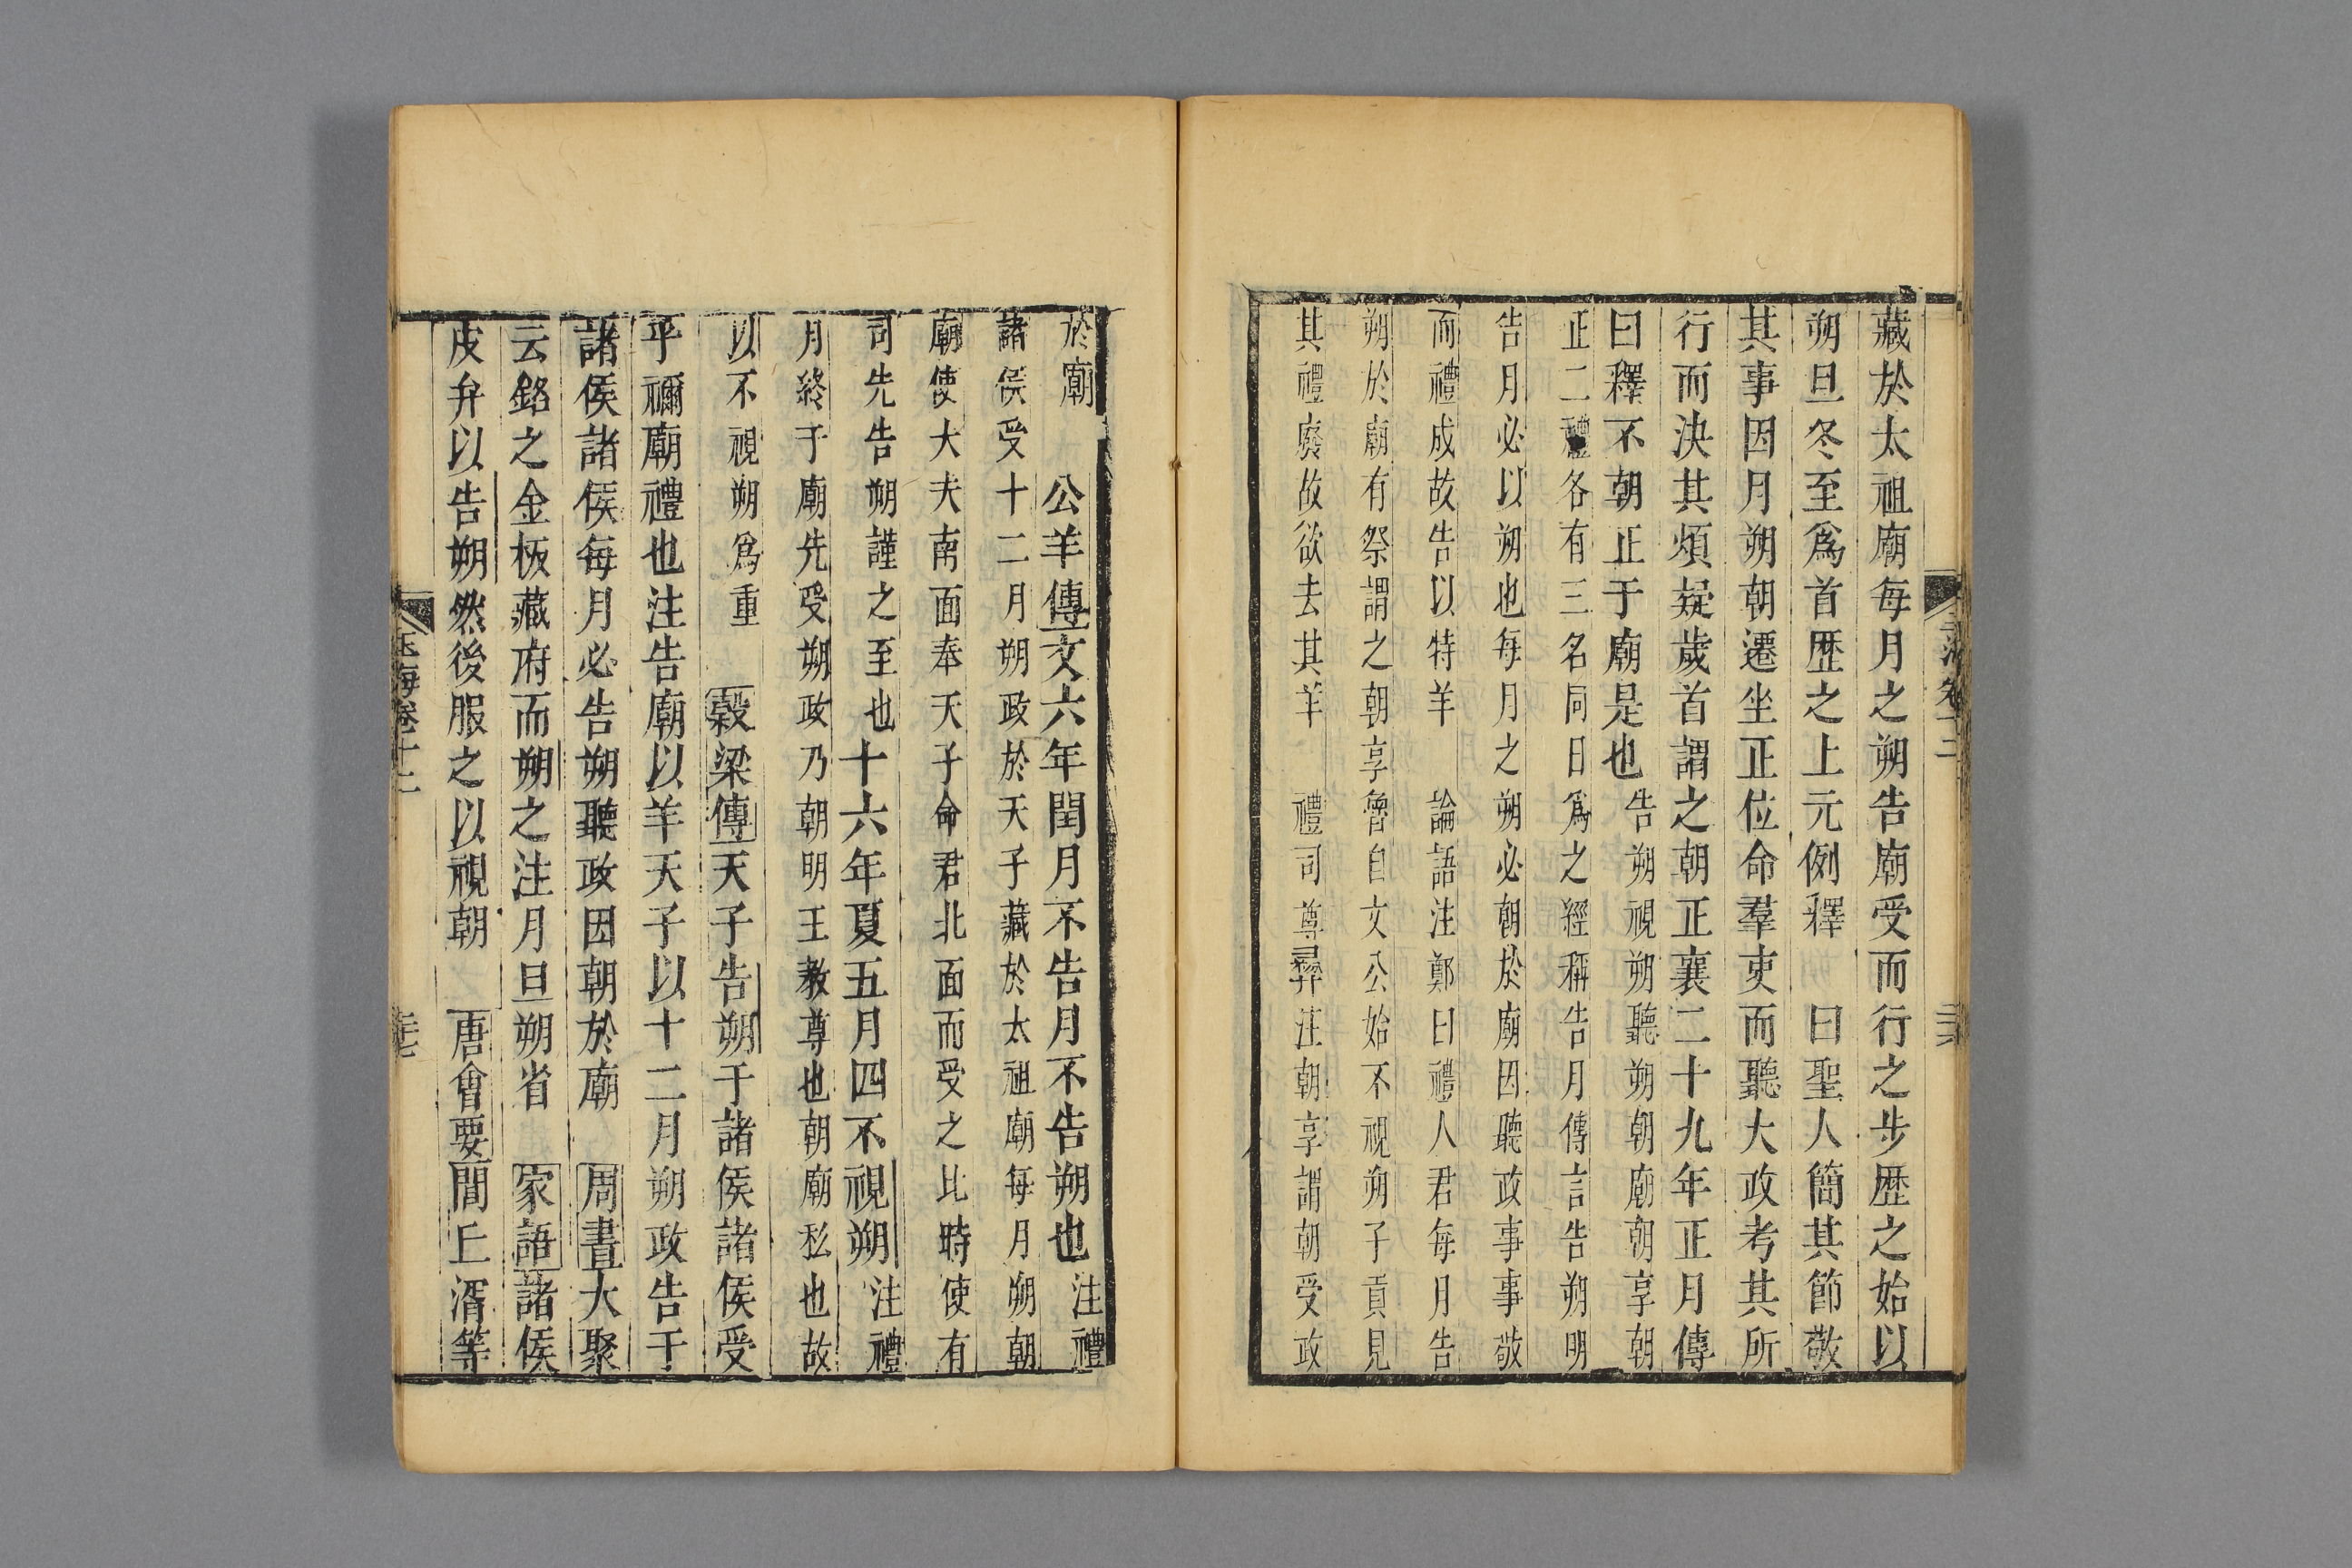 藏於太祖廟每月之朔告廟受而行之步歷之始以
朔旦冬至爲首歷之上元例釋 曰聖人簡其節敬
其事因月朔朝遷坐正位命羣吏而聽大政考其所
行而決其煩疑歲首謂之朝正襄二十九年正月傳
曰釋不朝正于廟是也 告朔視朔聽朔朝廟朝享朝
正二禮各有三名同日爲之經稱告月傳言告朔明
告月必以朔也每月之朔必朝於廟因聽政事事敬
而禮成故告以特羊 論語注鄭曰禮人君每月告
朔於廟有祭謂之朝享魯自文公始不視朔子貢見
其禮廢故欲去其羊 禮司尊彝注朝享謂朝受政
玉海卷十二 三六
於廟 公羊傳文六年閏月不告月不告朔也 注禮
諸侯受十二月朔政於天子藏於太祖廟每月朔朝
廟使大夫南面奉天子命君北面而受之比時使有
司先告朔謹之至也十六年夏五月四不視朔 注禮
月終于廟先受朔政乃朝明王教尊也朝廟私也故
以不視朔爲重 穀梁傳天子告朔于諸侯諸侯受
乎禰廟禮也注告廟以羊天子以十二月朔政告于
諸侯諸侯每月必告朔聽政因朝於廟 周書大聚
云銘之金板藏府而朔之注月旦朔省 家語諸侯
皮弁以告朔然後服之以視朝 唐會要閭丘湑等
玉海卷十二 三七